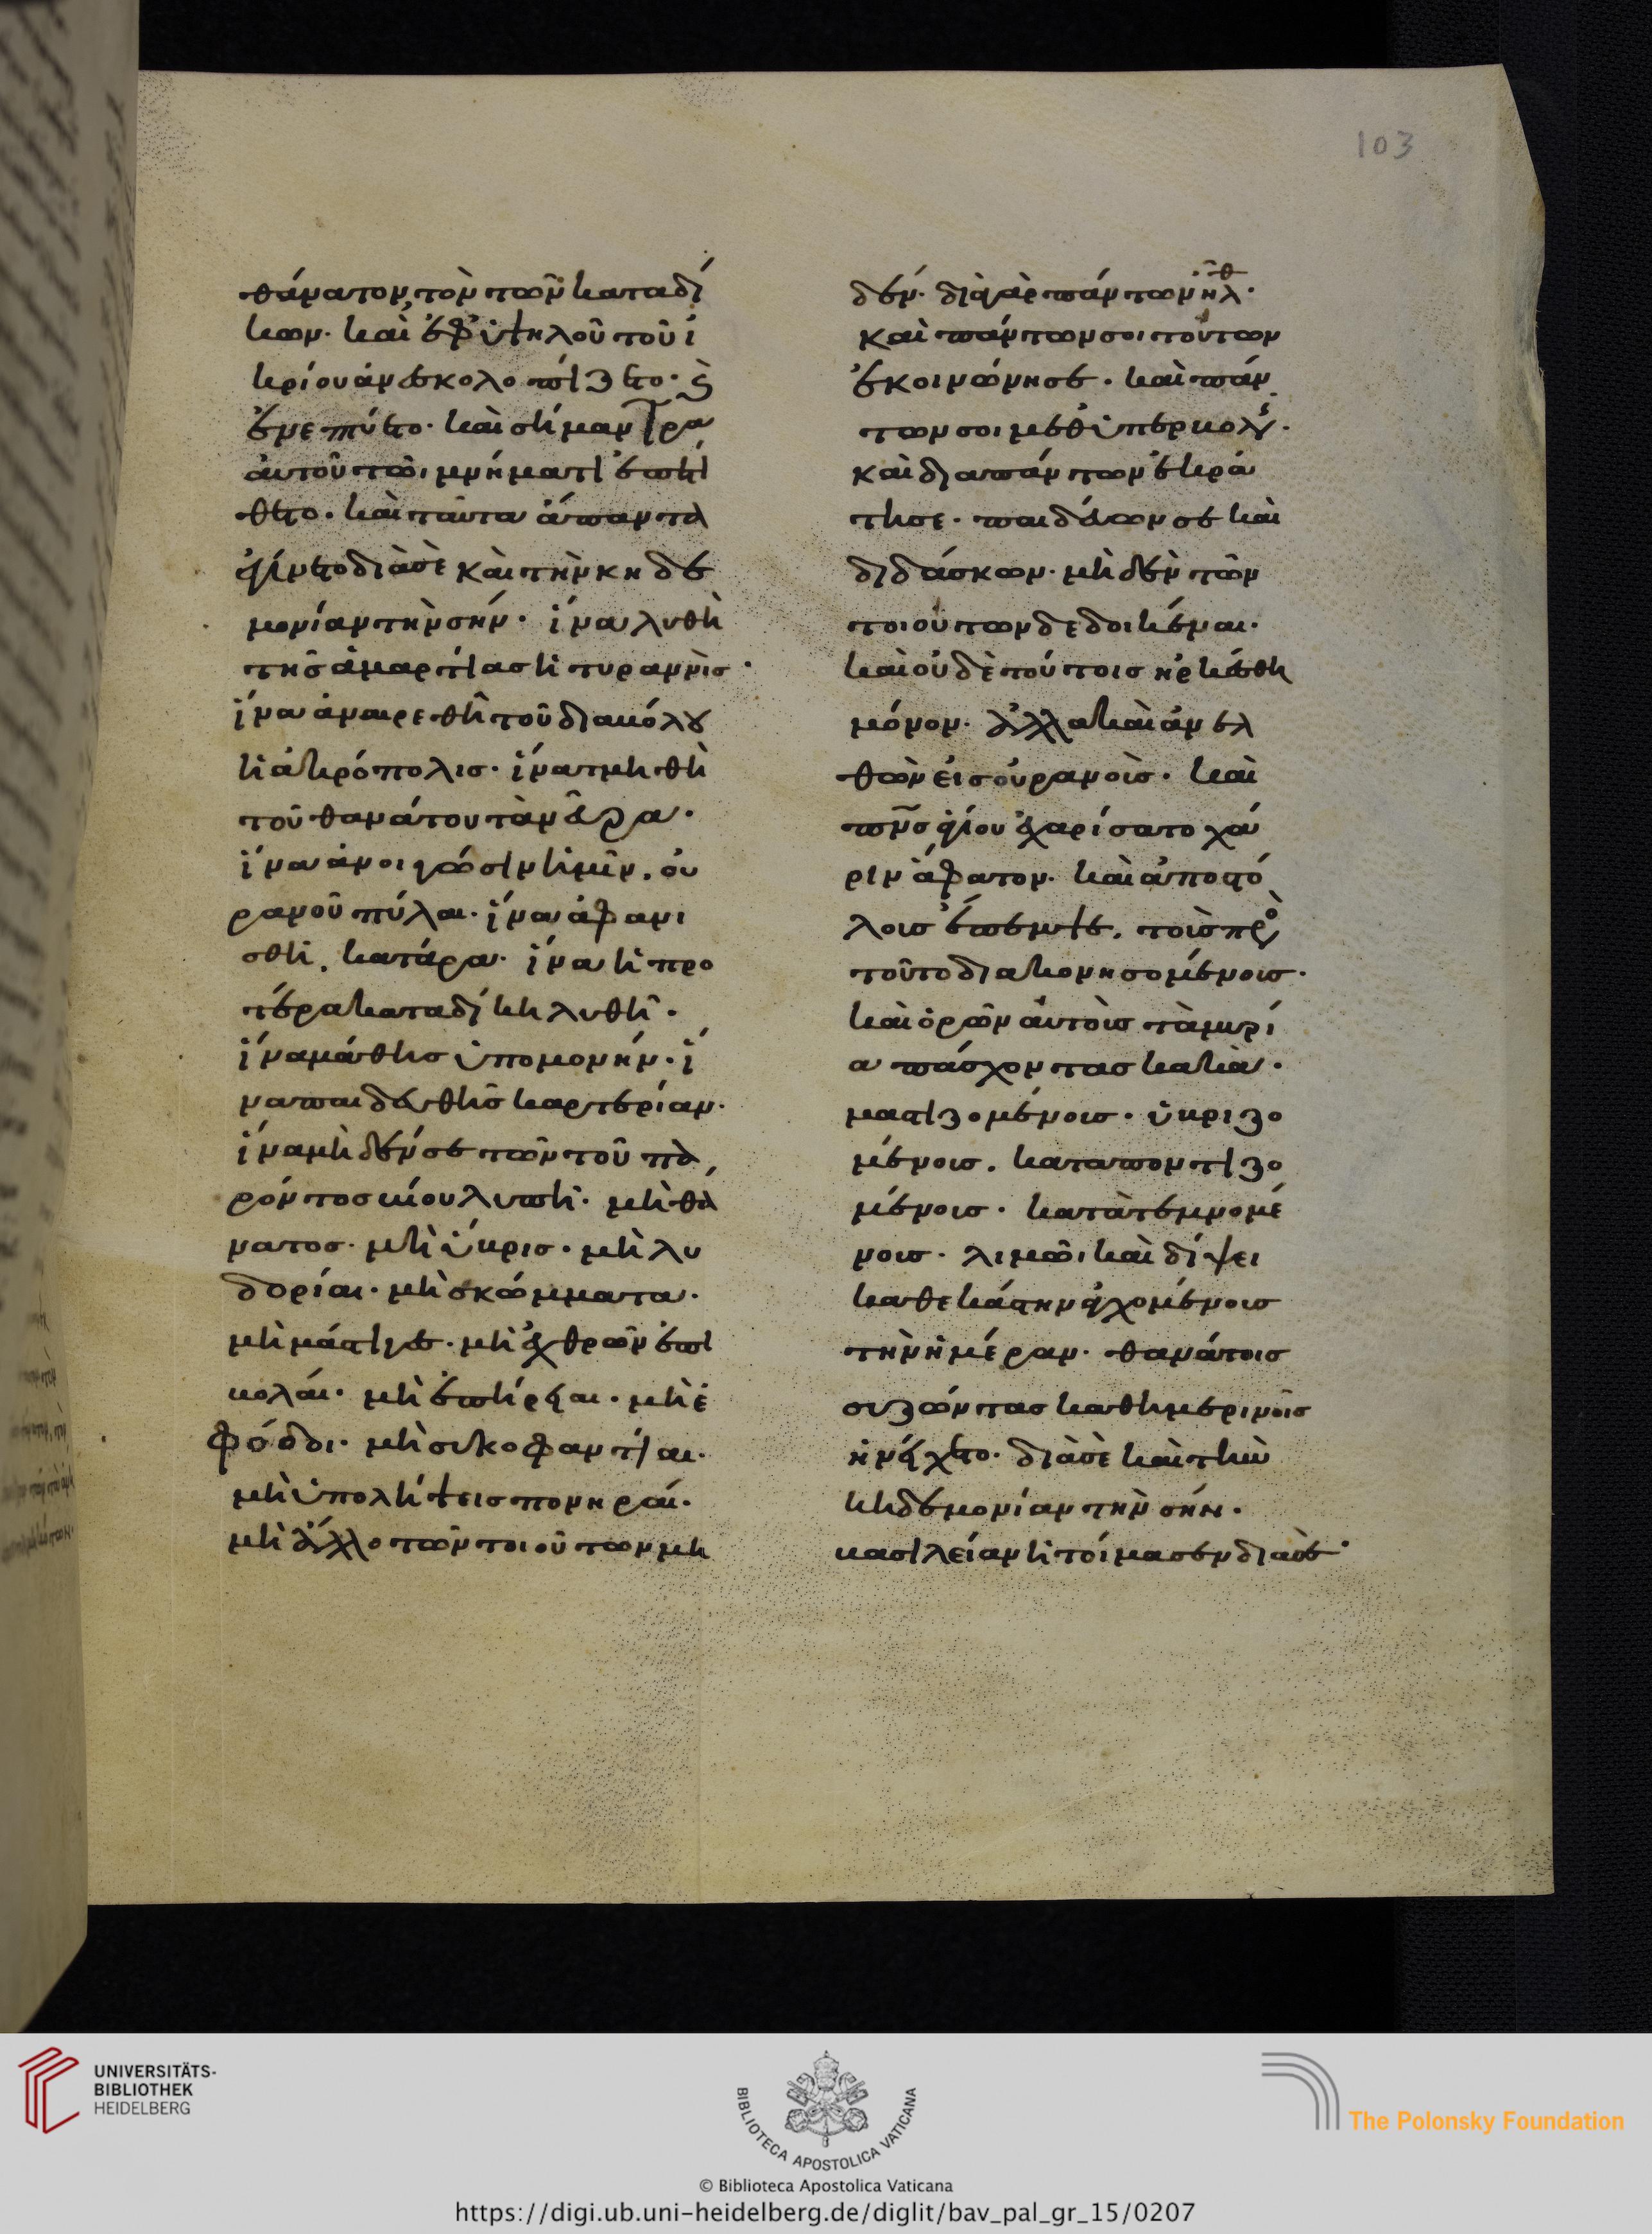 103
θάνατον τὸν τῶν καταδί
κων· καὶ ἐφ ὑψηλοῦ τοῦ ἰ
κρίου ἀνεσκολοπίζετο· κ(αὶ)
ἐνεπτύετο· καὶ σήμαντρα
αὐτοῦ τῶι μνήματι ἐπετί
θετο· καὶ ταῦτα ἅπαντα
ἐγίνετο διὰ σὲ καὶ τὴν κηδε
μονίαν τὴν σήν· ἵνα λυθῆ
τῆς ἁμαρτίας ἡ τυραννὶς·
ἵνα ἀναιρεθῆ τοῦ διαβόλου
ἡ ἀκρόπολις· ἵνα τμηθῆ
τοῦ θανάτου τὰ νεῦρα·
ἵνα ἀνοιγῶσιν ἡμῖν, οὐ
ρανοῦ πύλαι· ἵνα ἀφανι
σθῆ, κατάρα· ἵνα ἡ προ
τέρα καταδίκη λυθῆ·
ἵνα μάθης ὑπομονήν· ἵ
να παιδευθῆς καρτερίαν·
ἵνα μηδέν σε τῶν τοῦ πα
ρόντος βίου λυπῆ· μὴ θά
νατος· μὴ ὕβρις· μὴ λυ
δορίαι· μὴ σκώμματα·
μὴ μάστιγες· μὴ ἐχθρῶν ἐπι
βολαί· μὴ ἐπήρειαι· μὴ ἐ
φόδοι· μὴ συκοφαντίαι·
μὴ ὑπολήψεις πονηραί·
μὴ ἄλλο τῶν τοιούτων μη
δέν· διὰ γὰρ πάντων ἦλθ·
καὶ πάντων σοι τούτων
ἐκοινώνησε· καὶ πάν
των σοι μεθ ὑπερβολῆς·
καὶ διαπάντων ἐκρά
τησε· παιδεύων σε καὶ
διδάσκων· μηδὲν τῶν
τοιούτων δεδοικέναι·
καὶ οὐδὲ τούτοις ἠρκέσθη
μόνον· ἀλλα καὶ ἀνελ
θὼν εἰς οὐρανοὺς· καὶ
πνς ἁγίου ἐχαρίσατο χά
ριν ἄφατον· καὶ ἀποστό
λους ἔπεμψε, τοὺς πρὸς
τοῦτο διακονησομένους·
καὶ ὁρῶν αὐτοὺς τὰ μυρί
α πάσχοντας κακὰ·
μαστιζομένους· ὑβριζο
μένους, καταποντιζο
μένους· κατὰτεμνομέ
νους· λιμῶι καὶ δίψει
καθεκάστην ἀγχομένους
τὴν ἡμέραν· θανάτοις
συζῶντας καθημερινοῖς
ἠνείχετο· διὰ σὲ καὶ τὴν
κηδεμονίαν τὴν σήν·
βασιλείαν ἡτοίμασεν διὰ σὲ·
UNIVERSITÄTS-
BIBLIOTHEK
HEIDELBERG
BIBLIOTECA APOSTOLICA VATICANA
The Polonsky Foundation
© Biblioteca Apostolica Vaticana
https://digi.ub.uni-heidelberg.de/diglit/bav_pal_gr_15/0207